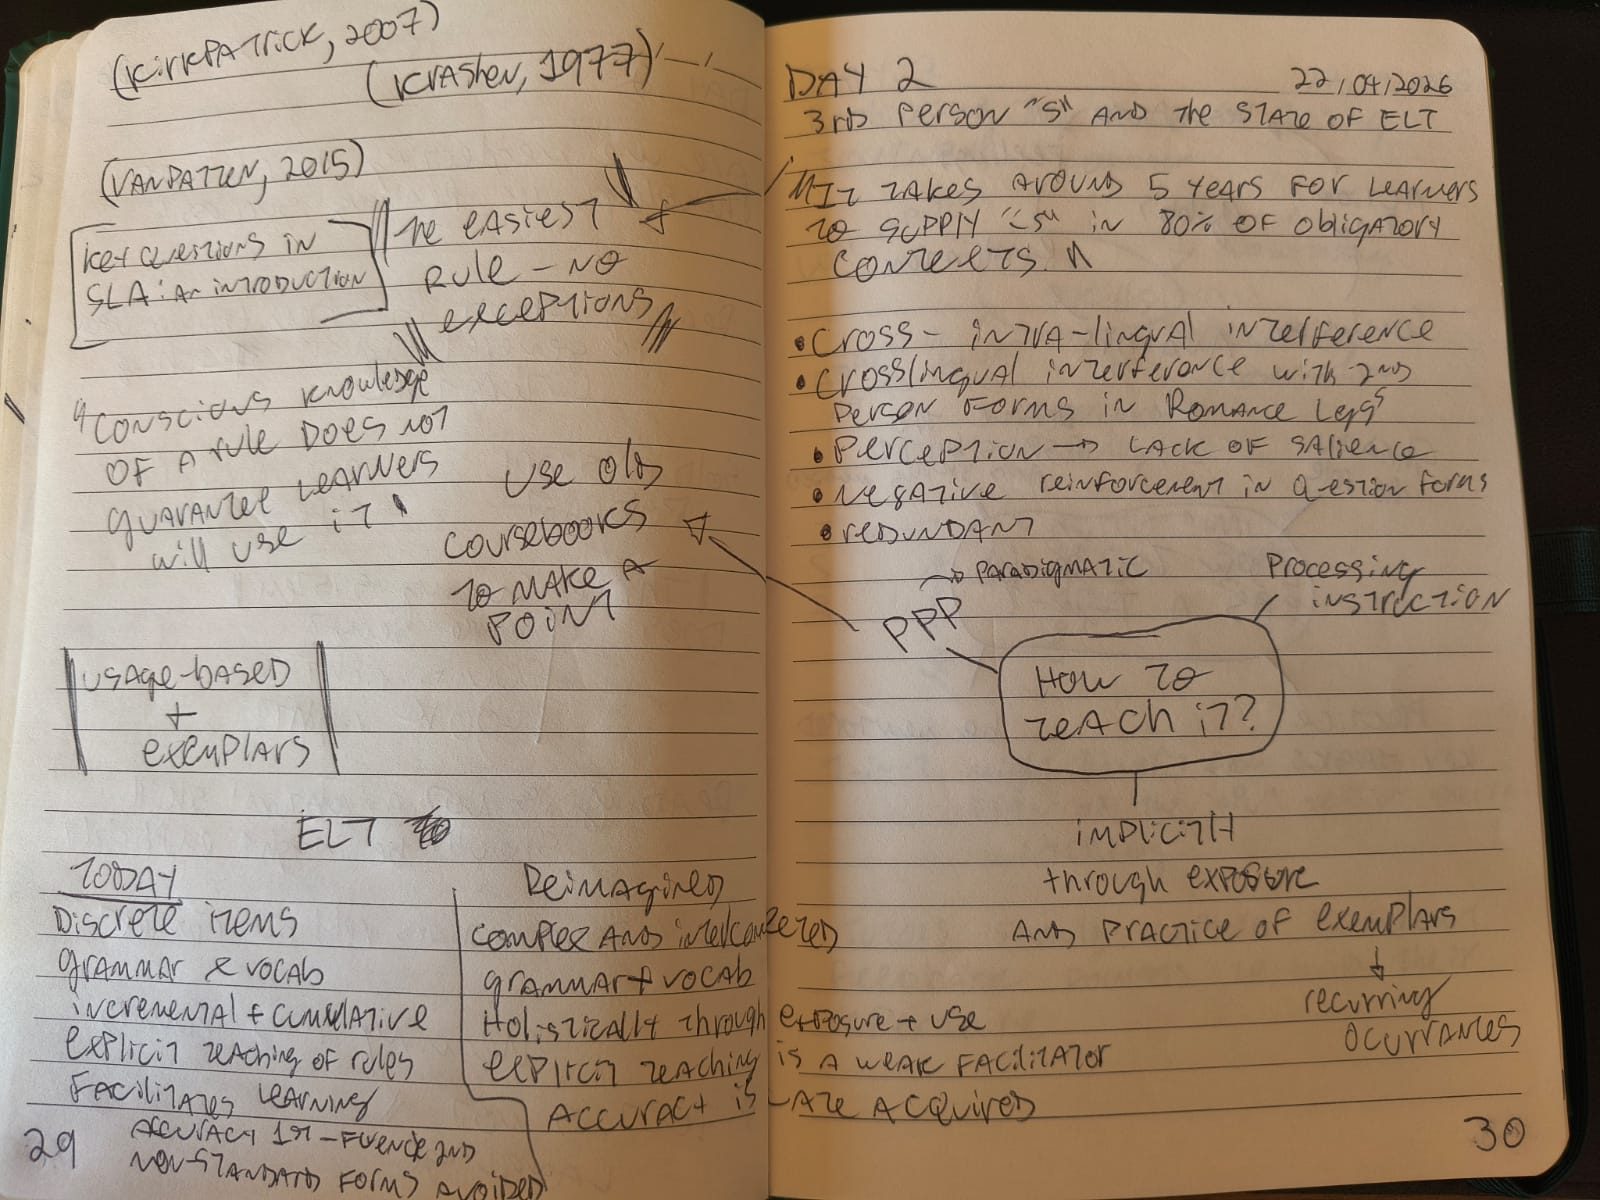 (KIRKPATRICK, 2007)
(KRASHEN, 1977)
(VANPATTEN, 2015)
KEY QUESTIONS IN
SLA: AN INTRODUCTION
THE EASIEST
RULE - NO
EXCEPTIONS
"CONSCIOUS KNOWLEDGE
OF A RULE DOES NOT
GUARANTEE LEARNERS
WILL USE IT"
USE OLD
COURSEBOOKS
TO MAKE A
POINT
USAGE-BASED
+
EXEMPLARS
ELT
TODAY
DISCRETE ITEMS
GRAMMAR & VOCAB
INCREMENTAL + CUMULATIVE
EXPLICIT TEACHING OF RULES
FACILITATES LEARNING
ACCURACY 1ST - FLUENCY 2ND
NON-STANDARD FORMS AVOIDED
REIMAGINED
COMPLEX AND INTERCONNECTED
GRAMMAR + VOCAB
HOLISTICALLY THROUGH EXPOSURE + USE
EXPLICIT TEACHING IS A WEAK FACILITATOR
ACCURACY IS LATE ACQUIRED
29
DAY 2
22/04/2026
3RD PERSON "S" AND THE STATE OF ELT
"IT TAKES AROUND 5 YEARS FOR LEARNERS
TO SUPPLY "S" IN 80% OF OBLIGATORY
CONTEXTS"
• CROSS- INTRA-LINGUAL INTERFERENCE
• CROSSLINGUAL INTERFERENCE WITH 2ND
PERSON FORMS IN ROMANCE LGGS
• PERCEPTION → LACK OF SALIENCE
• NEGATIVE REINFORCEMENT IN QUESTION FORMS
• REDUNDANT
→ PARADIGMATIC
PPP
PROCESSING
INSTRUCTION
HOW TO
TEACH IT?
IMPLICITLY
THROUGH EXPOSURE
AND PRACTICE OF EXEMPLARS
↓
RECURRING
OCURRANCES
30